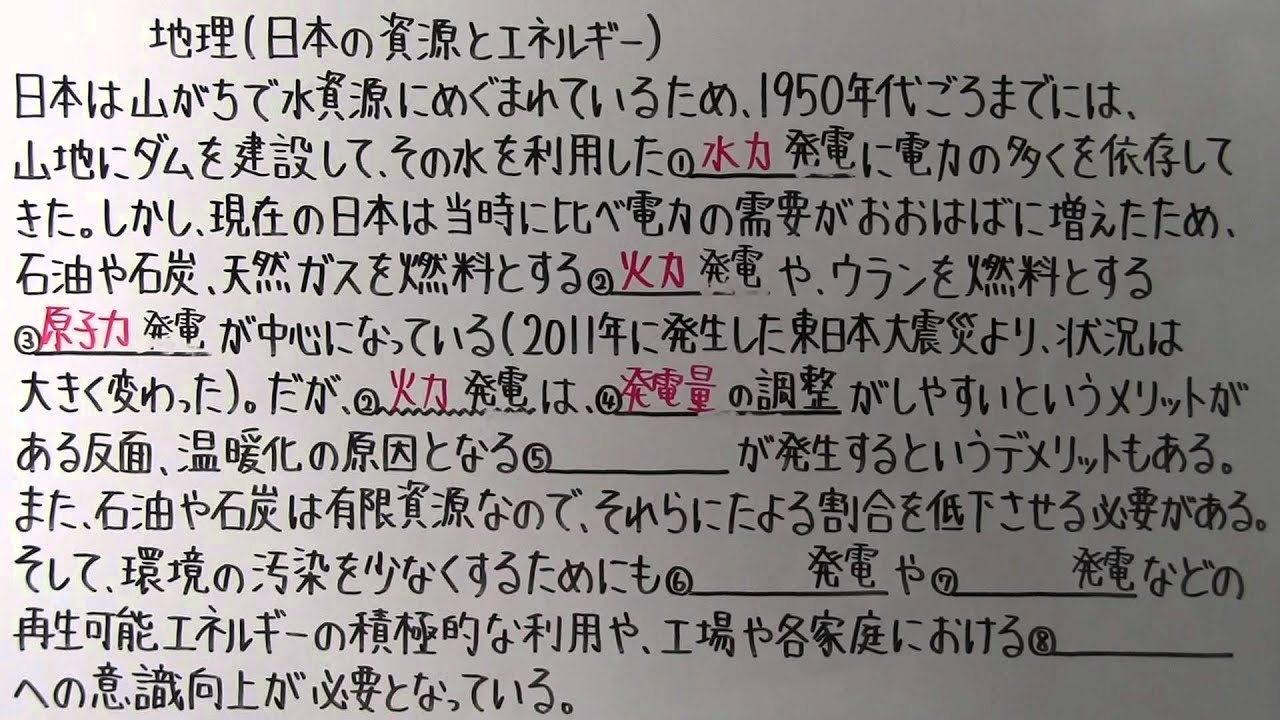 地理(日本の資源とエネルギー)
日本は山がちで水資源にめぐまれているため、1950年代ごろまでには、
山地にダムを建設して、その水を利用した①水力発電に電力の多くを依存して
きた。しかし、現在の日本は当時に比べ電力の需要がおおはばに増えたため、
石油や石炭、天然ガスを燃料とする②火力発電や、ウランを燃料とする
③原子力発電が中心になっている(2011年に発生した東日本大震災より、状況は
大きく変わった)。だが、②火力発電は、④発電量の調整がしやすいというメリットが
ある反面、温暖化の原因となる⑤______が発生するというデメリットもある。
また、石油や石炭は有限資源なので、それらにたよる割合を低下させる必要がある。
そして、環境の汚染を少なくするためにも⑥______発電や⑦______発電などの
再生可能エネルギーの積極的な利用や、工場や各家庭における⑧______
への意識向上が必要となっている。